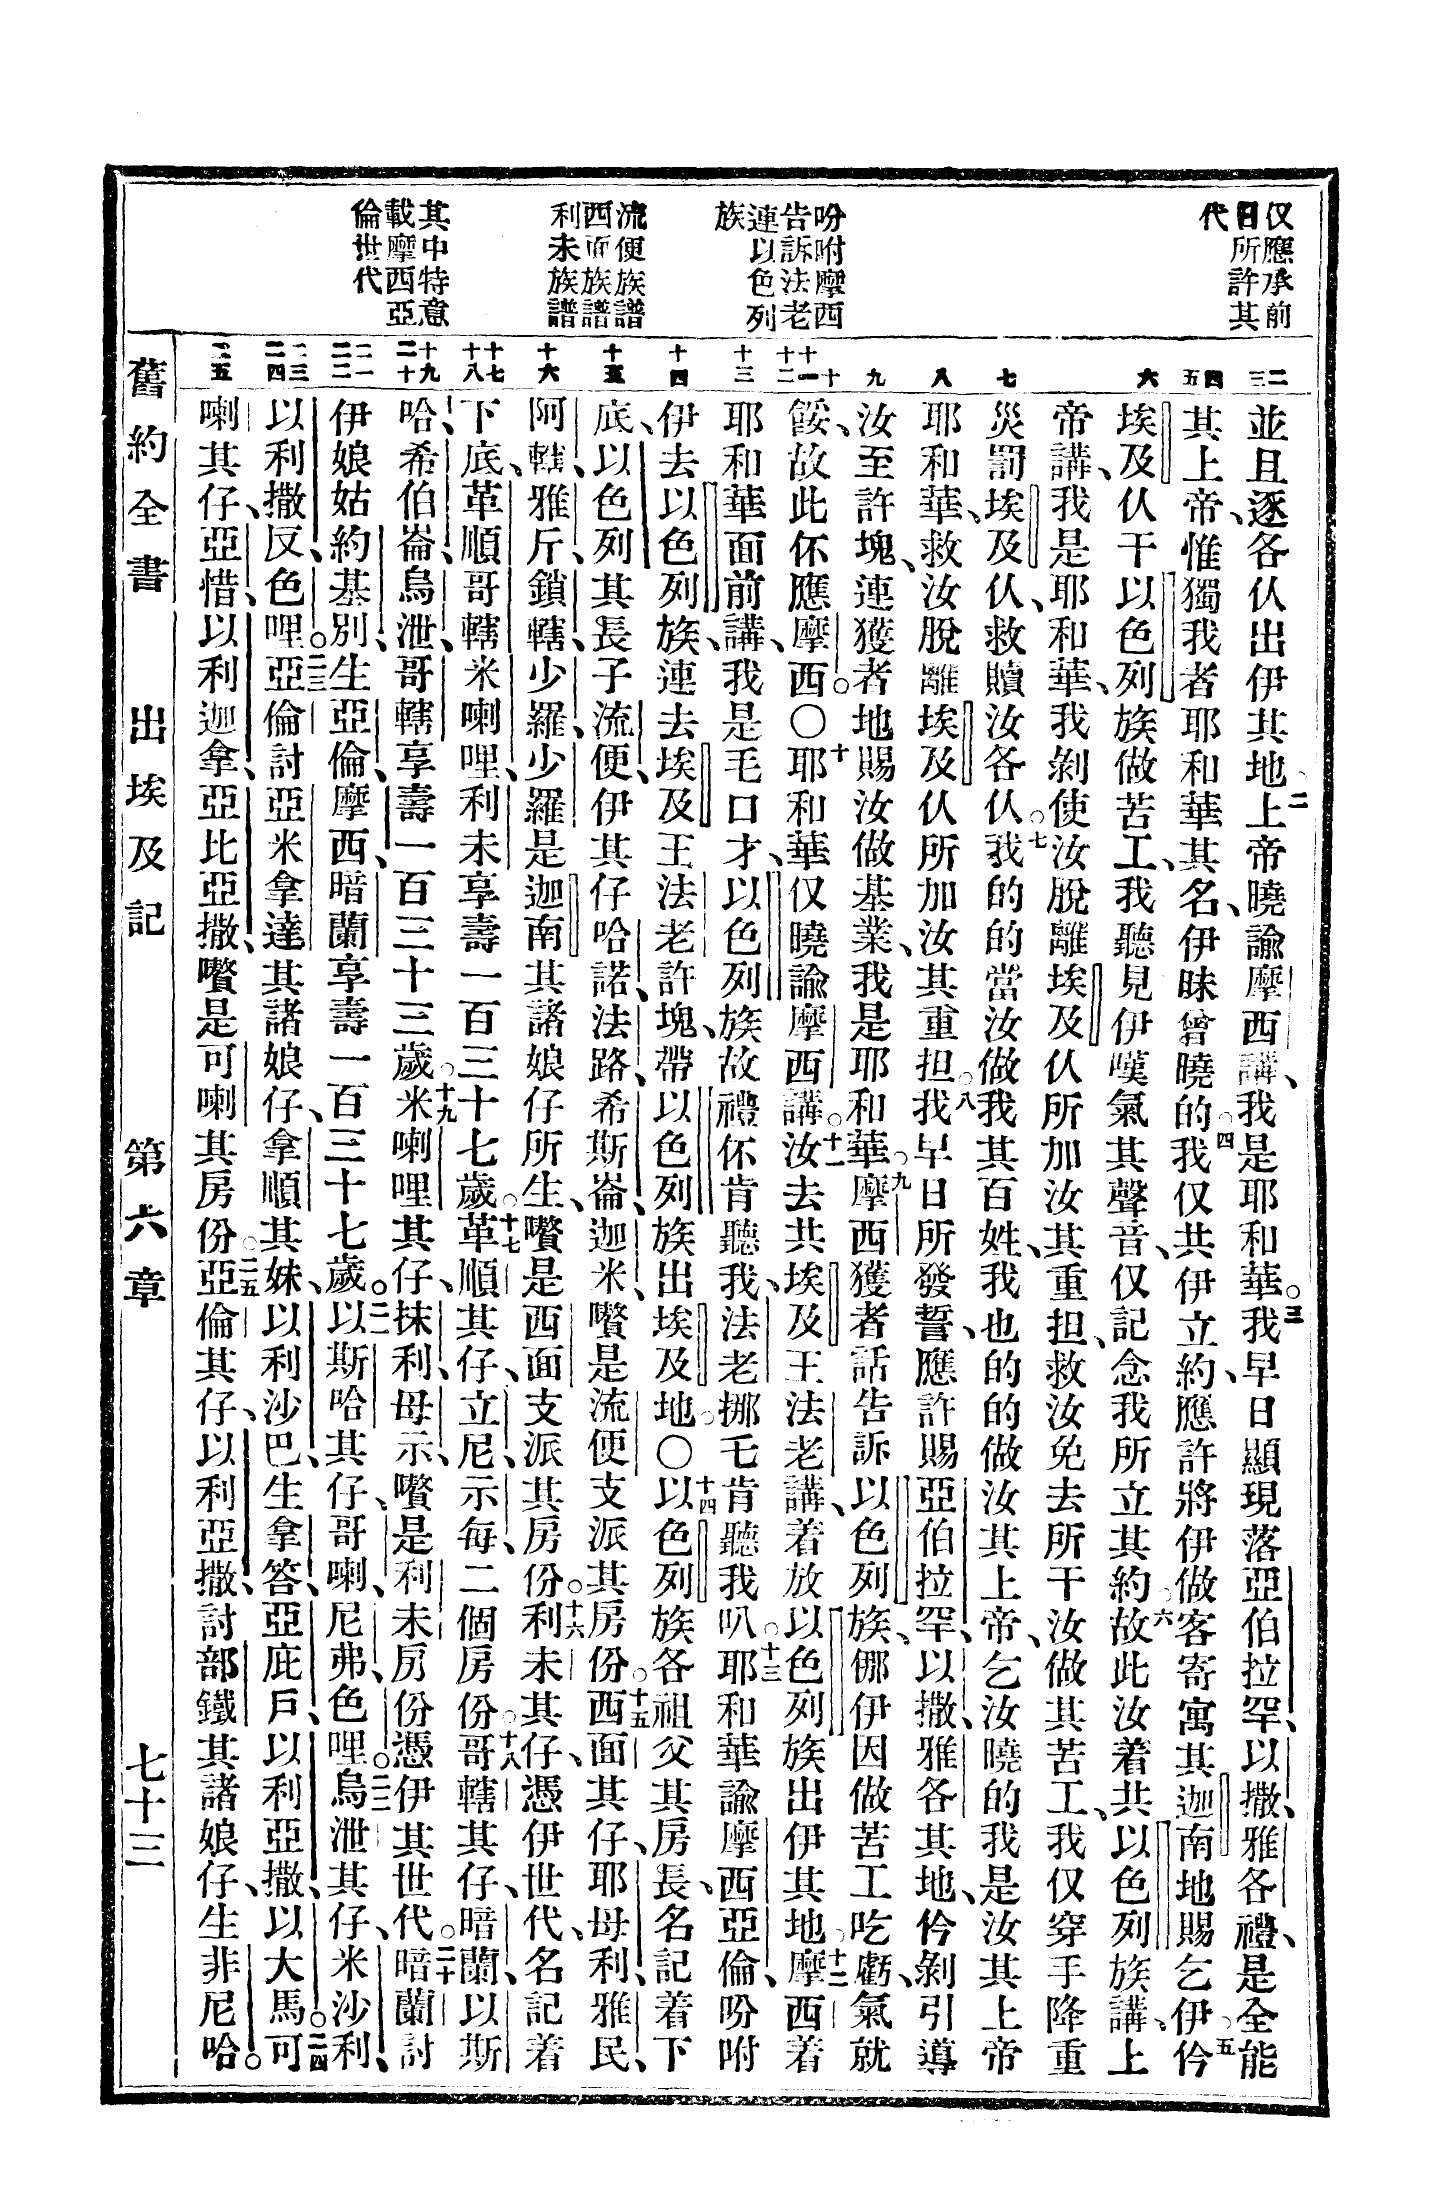 仅應承前
日所許其
代
吩咐摩西
告訴法老
連以色列
族
流便族譜
西面族譜
利未族譜
其中特意
載摩西亞
倫世代
並且逐各仈出伊其地、二上帝曉諭摩西講、我是耶和華。三我早日顯現落亞伯拉罕、以撒、雅各、禮是全能
其上帝、惟獨我者耶和華其名、伊昧曾曉的。四我仅共伊立約、應許將伊做客寄寓其迦南地賜乞伊。五仱
埃及仈干以色列族做苦工、我聽見伊嘆氣其聲音、仅記念我所立其約。六故此汝着共以色列族講、上
帝講、我是耶和華、我剝使汝脫離埃及仈所加汝其重担、救汝免去所干汝做其苦工、我仅穿手降重
災罰埃及仈、救贖汝各仈。七我的的當汝做我其百姓、我也的的做汝其上帝、乞汝曉的我是汝其上帝
耶和華、救汝脫離埃及仈所加汝其重担。八我早日所發誓、應許賜亞伯拉罕、以撒、雅各其地、仱剝引導
汝至許塊、連獲者地賜汝做基業、我是耶和華。九摩西獲者話告訴以色列族、㑚伊因做苦工吃虧、氣就
餒、故此伓應摩西。〇十耶和華仅曉諭摩西講。十一汝去共埃及王法老講、着放以色列族出伊其地。十二摩西着
耶和華面前講、我是毛口才、以色列族故禮伓肯聽我、法老挪乇肯聽我叭。十三耶和華諭摩西亞倫、吩咐
伊去以色列族、連去埃及王法老許塊、帶以色列族出埃及地。〇十四以色列族各祖父其房長、名記着下
底、以色列其長子流便、伊其仔哈諾、法路、希斯崙、迦米、嚽是流便支派其房份。十五西面其仔、耶母利、雅民、
阿轄、雅斤、鎖轄、少羅、少羅是迦南其諸娘仔所生、嚽是西面支派其房份。十六利未其仔、憑伊世代、名記着
下底、革順、哥轄、米喇哩、利未享壽一百三十七歲。十七革順其仔、立尼、示每、二個房份。十八哥轄其仔、暗蘭、以斯
哈、希伯崙、烏泄、哥轄享壽一百三十三歲。十九米喇哩其仔、抹利、母示、嚽是利未房份、憑伊其世代。二十暗蘭討
伊娘姑約基別、生亞倫、摩西、暗蘭享壽一百三十七歲。二一以斯哈其仔、哥喇、尼弗、色哩。二二烏泄其仔、米沙利、
以利撒反、色哩。二三亞倫討亞米拿達其諸娘仔、拿順其妹、以利沙巴、生拿答、亞庇戶、以利亞撒、以大馬。二四可
喇其仔、亞惜、以利迦拿、亞比亞撒、嚽是可喇其房份。二五亞倫其仔、以利亞撒、討部鐵其諸娘仔、生非尼哈。
舊約全書　出埃及記　第六章　七十三